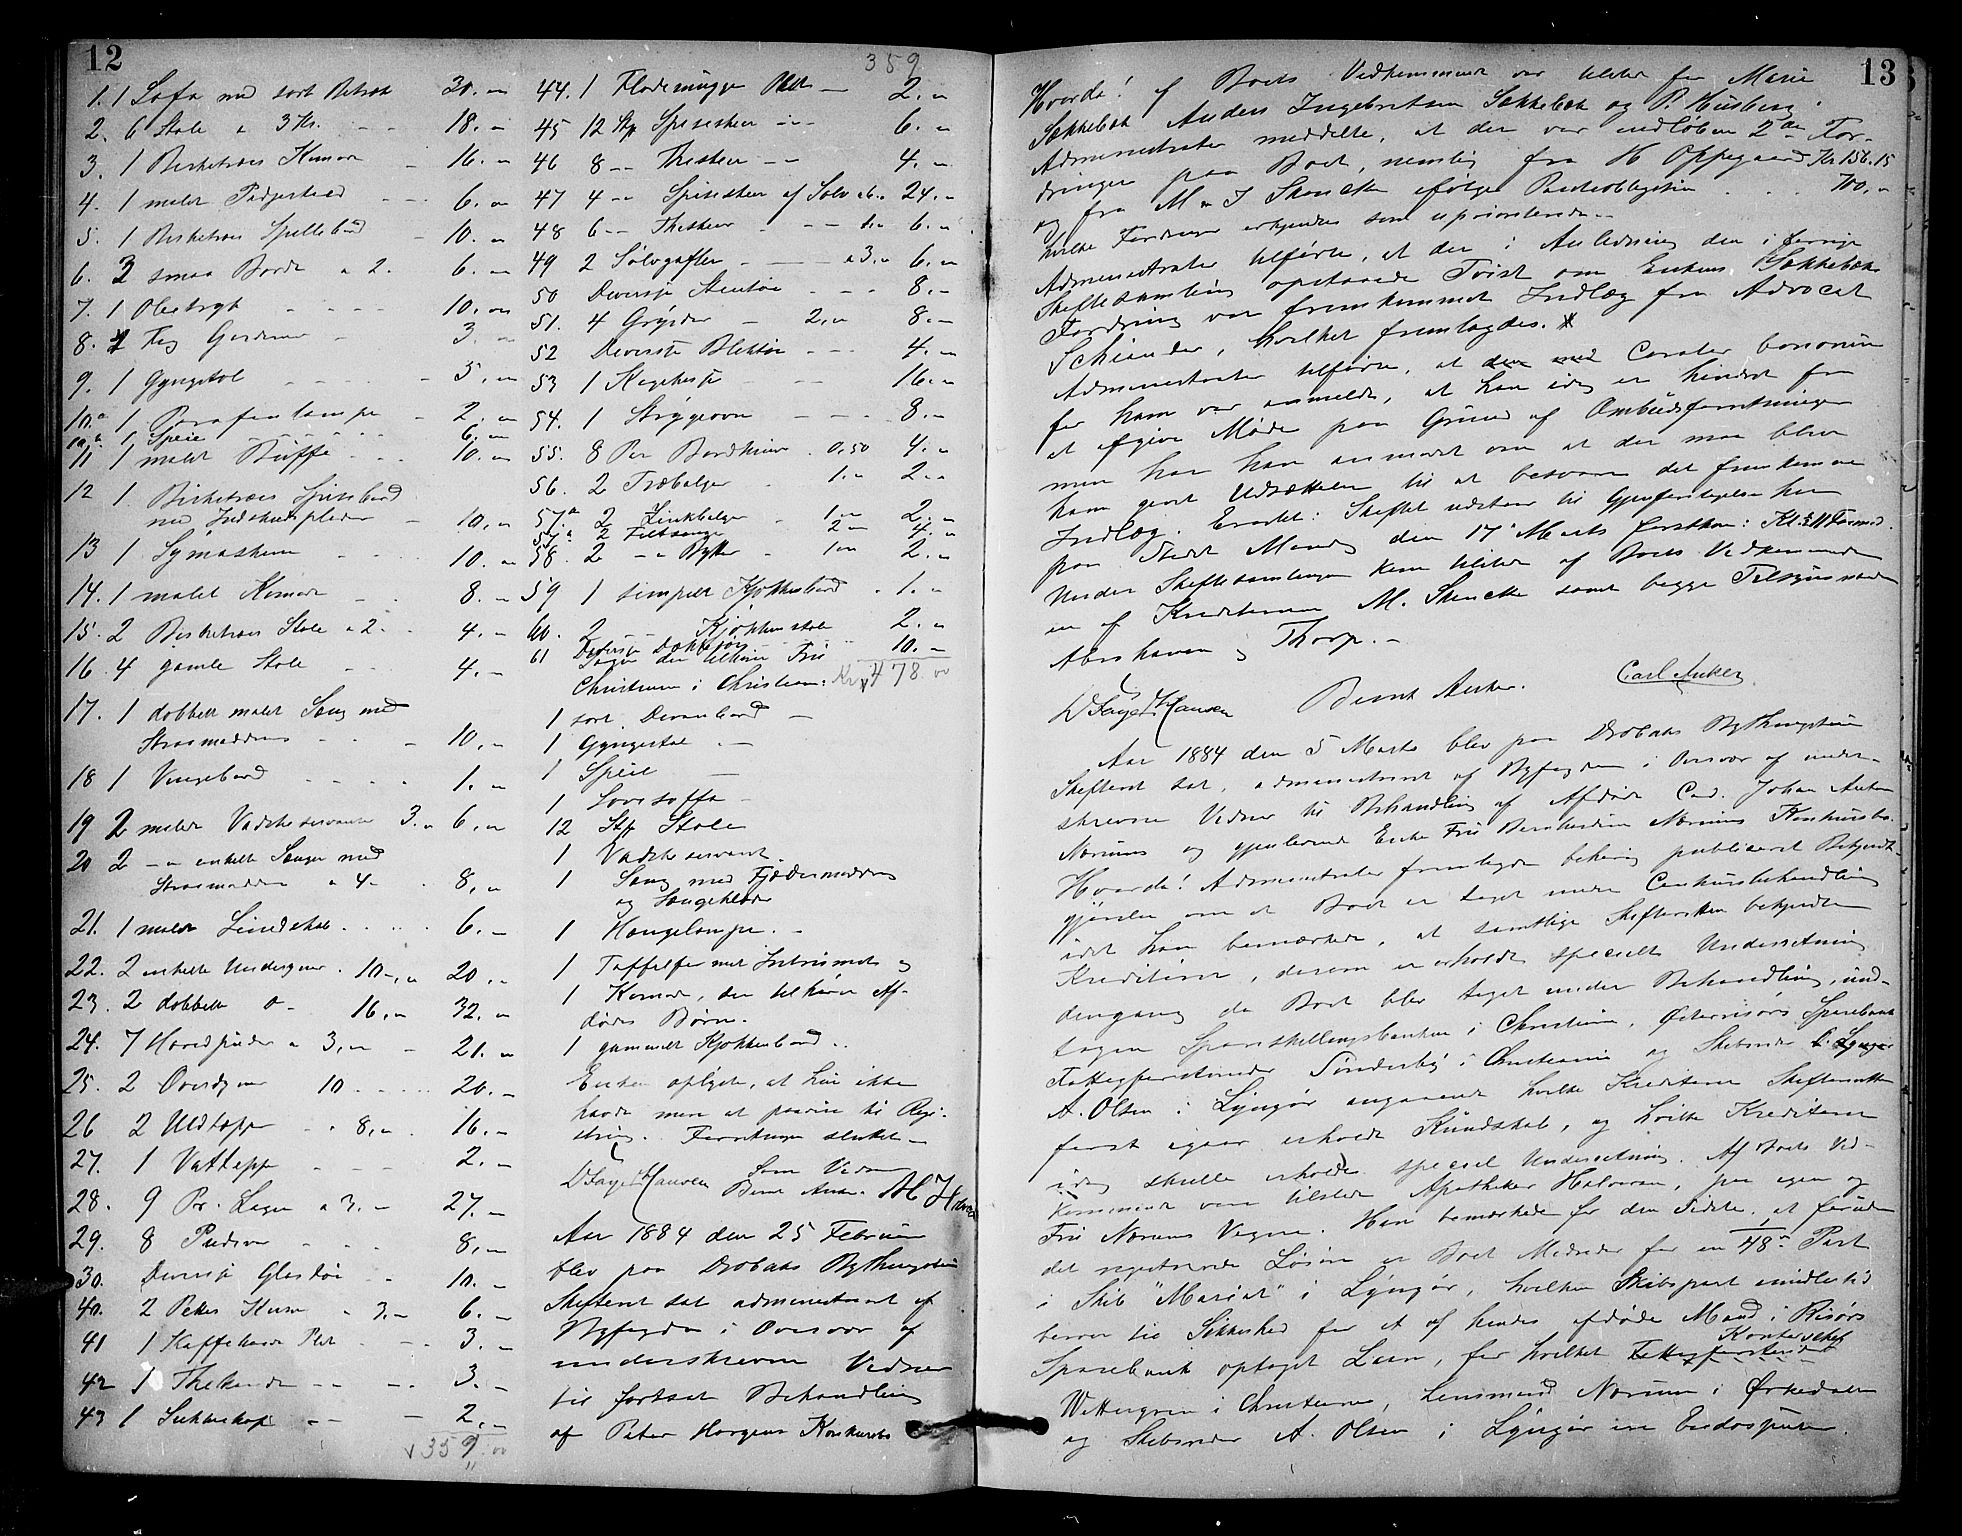 12
1. 1 Sofa med sort Betræk 30. "
2. 6 Stole a 3 Kr. - - 18. "
3. 1 Birketræes Komode - 16. "
4. 1 malet - - 6. "
5. 1 Birketræes Spillebord - 10. "
6. 3 smaa Borde a 2. 6. "
7. 1 Oliétryk - - - 10. "
8. 1 Fag Gardiner - 3. "
9. 1 Gyngestol - - - - 5. "
10. a 1 Parafinlampe - 2. "
1 Speil - - - 6. "
11 1 malet Büffe - - - 10. "
12 1 Birketræes Spisebord
med - 10. "
13 1 Symaskine - - - 10. "
14. 1 malet Komode - - 8. "
15. 2 Birketræes Stole a 2. - 4. "
16. 4 gamle Stole - - 4. "
17. 1 dobbelt malet Seng med
Straamadras - - - 10. "
18 1 - - - - 1. "
19 2 malede Vadskeservanter 3. " 6. "
20 2 - " enkelte Senge med
Straamadras a 4. . 8. "
21. 1 malet Linedskab . . . . 6. "
22. 2 enkelte Underdyner . 10. " 20. "
23. 2 dobbelte do - 16. " 32. "
24. 7 Hovedpuder a 3. " - 21. "
25. 2 Overdyner 10 - - - 20. "
26 2 Uldtæpper - a 8. " . 16. "
27. 1 Vattæppe - - - - 2. "
28. 9 Pr. Lagen a 3. - 27. "
29. 8 Pudevar - - - 8. "
30. Diverse Glastöi - - 10. "
40. 2 a 3. - 6. "
41 1 Kaffekande Plet - - - 3. "
42 1 Thekande - - - - 3. "
43 1 Sukkerkop - - - 2. "
359. 00
359
44. 1 Flødemugge Plet - 2. "
45 12 Stk Spiseskeer - - 6. "
46 8 - - Theskeer - - 4. "
47 4 - " Spiseskeer af Sølv a 6. " 24. "
48 6 - - Theskeer - - - 1. " 6. "
49 2 Sølvgafler - - - a 3. " 6. "
50 Diverse - - - 8. "
51. 4 Gryder - 2. " 8. "
52 Diverse Bliktöi - - - 4. "
53 1 - - 16. "
54. 1 Strygeovn - - - 8. "
55. 8 Par Bordknive . 0,50 4. "
56. 2 Træbalger - 1. " 2. "
57. a 2 Zinkbalger - 1. " 2. "
2 2. " 4. "
58. 2 - " Bøtter - 1. " 2. "
59 1 simpelt Kjøkkenbord . 1. "
60. 2 - - Kjøkkenstole 2. "
61 Diverse Dækketøi - - 10. "
Kr 478. 00
der tilhører Frü
Christensen i Christiania:
1 sort Divanbord -
1 Gyngestol . -
1 Speil -
1 Sovesoffa -
12 Stk Stole
1 Vadskeservant.
1 Seng med Fjædermadras
og Sengeklæder
1 Hængelampe. -
1 Taffelformet Instrument og
1 Komode, der tilhører Af-
dødes Børn.
1 gammelt Kjøkkenbord . .
Enken oplyste, at hün ikke
havde mere at paavise til Regi-
string. Forretningen sluttet. -
D. Faye Hansen Som Vidner
Bernt Anker. A. H. Hansen
Aar 1884 den 25 Februar
blev paa Drøbaks Bythingstue
Skifteret sat administreret af
Byfogden i Overvær af
underskrevne Vidner
til fortsat Behandling
af Peter Horgens Konkursbo
13
Hvorda! af Boets Vedkommende var tilstede for Marie
Søkkebæk Anders Ingebretsen Søkkebæk og P. Husberg.
Administrator meddelte, at der var indløben 2de For-
dringer paa Boet, nemlig fra H Oppegaard Kr. 156. 15
og fra M. J. Skencke ifølge Panteobligation . . . 700. "
hvilke Fordringer erkjendtes som uprioriterede. -
Administrator tilførte, at der i Anledning den i forrige
Skiftesamling opstaaede Tvist om Enkens Søkkebæks
Fordring var fremkommet Indlæg fra Advocat
Schiander, hvilket fremlagdes. *
Administrator tilførte, at Curator bonorum
før ham var anmeldt, at han idag er hindret fra
at afgive Møde paa Grund af Ombudsforretninger
men har han anmodet om at der maa blive
ham givet Udsættelse til at besvare det fremkomne
Indlæg. Eragtet: Skiftet udstaar til Gjenforetagelse her
paa Stedet Mandag den 17de Marts førstkom: Kl. 11 Formid.
Under Skiftesamlingen kom tilstede af Boets Vedkommende
en af Kreditorerne M. Skencke samt begge Tilsynsmænd
Abrahamsen og Thorp. -
D Faye Hansen Bernt Anker. Carl Anker
Aar 1884 den 5 Marts blev paa Drøbaks Bythingstue
Skifteret sat, administreret af Byfogden i Overvær af under-
skrevne Vidner til Behandling af Afdøde Cand. Johan Anton
Nærums og gjenlevende Enke Frü Bernhardine Nærums Konkursbo.
Hvorda! Administrator fremlagde behørig publiceret Bekjendt-
gjørelse om at Boet er taget under Concursbehandling
idet han bemærkede, at samtlige Skifteretten bekjendte
Kreditorer, derom er erholdt specielt Underretning
dengang da Boet blev taget under Behandling, und-
tagen Spareskillingsbanken i Christiania, Østerrisørs Sparebank
Fattigforstander Sønderby i Christiania og Skibsreder
A. Olsen i Lyngør angaaende hvilke Kreditorer Skifteretten
først igaar erholdt Kundskab, og hvilke Kreditorer
idag skulle erholde speciel Underretning. Af Boets Ved-
kommende vare tilstede Apotheker Halvorsen, paa egne og
Frü Nærums Vegne. Han bemærkede for den Sidste, at foruden
det registrerede Løsøre er Boet Medreder for en 1/48de Part
i Skib "Mariat" i Lyngør, hvilken Skibspart imidlertid
beror til Sikkerhed for et af hendes afdøde Mand i Risørs
Sparebank optaget Laan, for hvilket Kontorchef
Wettergren i Christiania, Lensmand Nærum i Ørkedalen
og Skibsreder A. Olsen i Lyngør ere Endossenter.